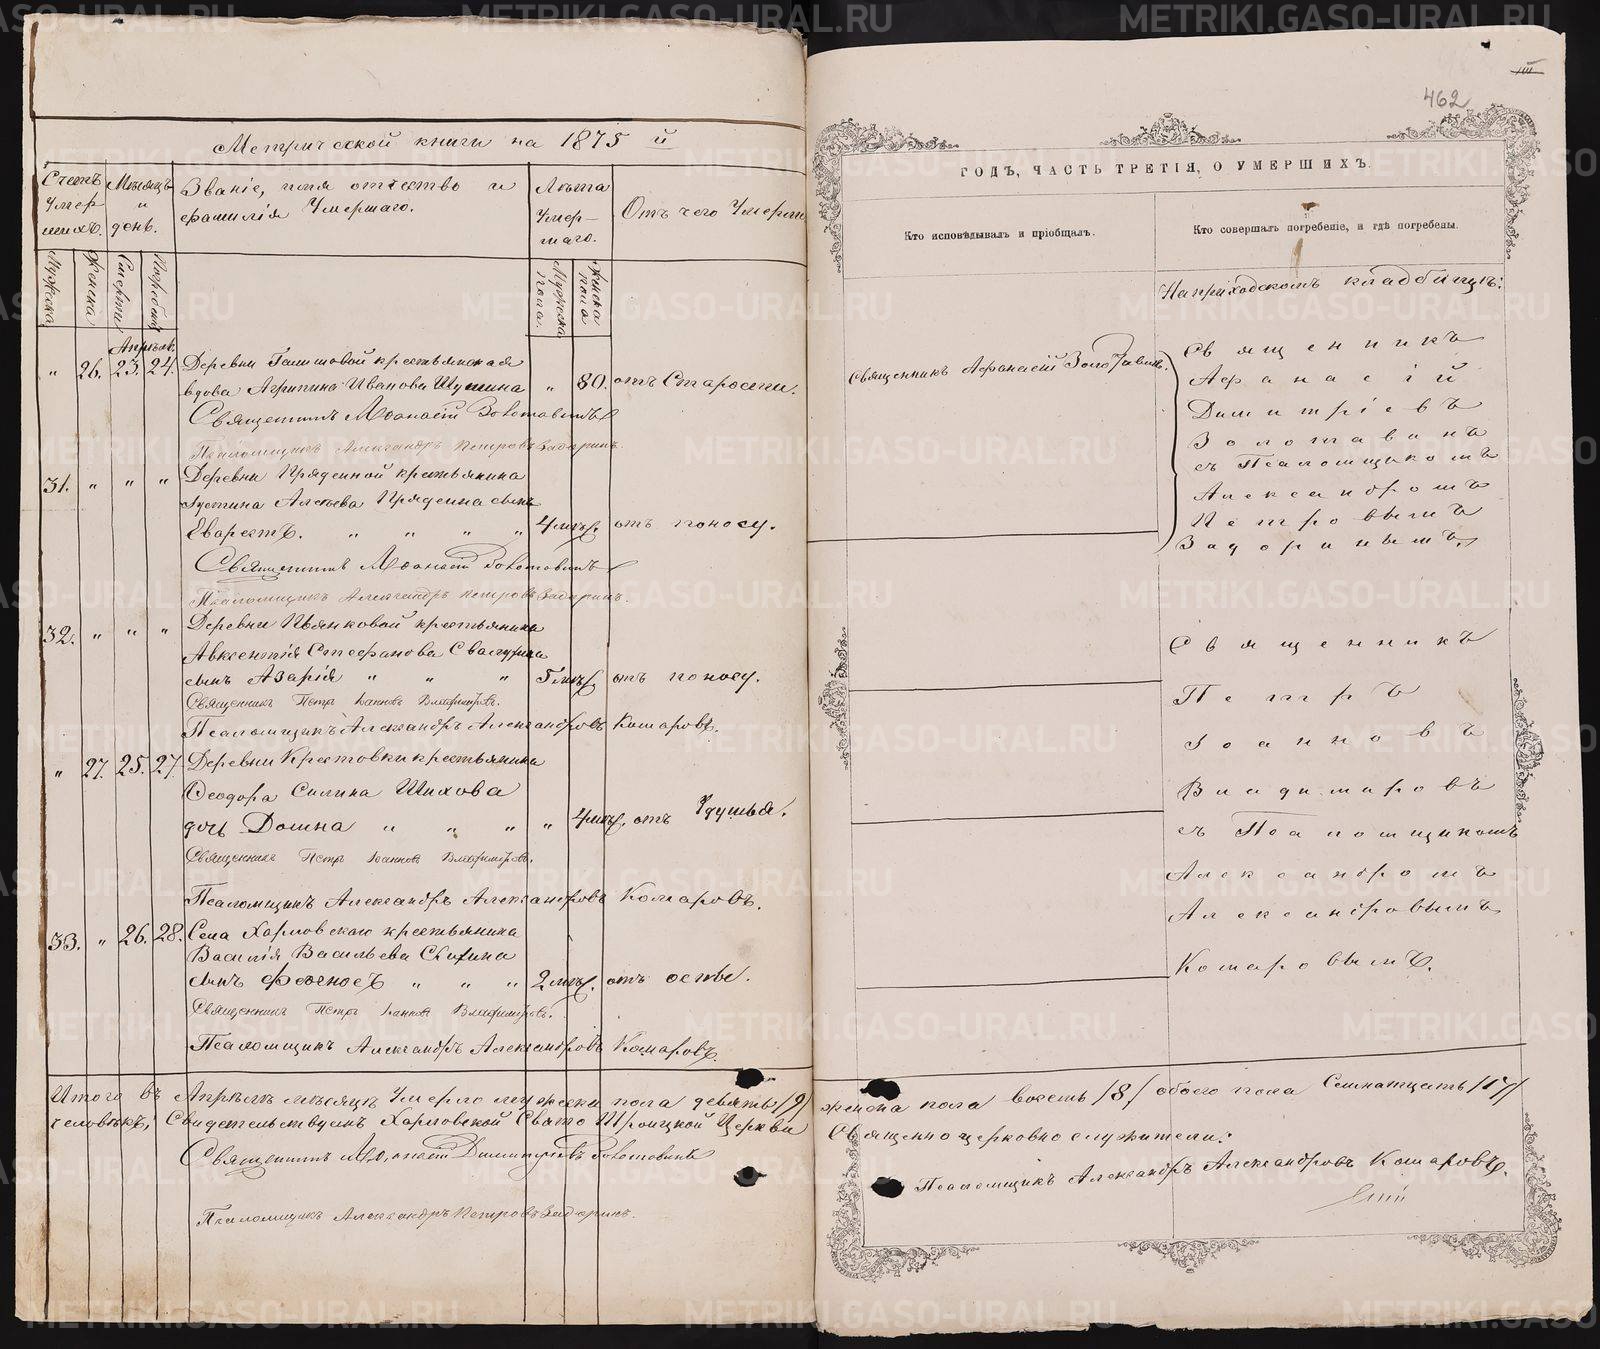 Метрической книги на 1875 й
Счетъ умер шихъ.
Мѣсяцъ и день.
Званіе, имя отчество и фамилія Умершаго.
Лѣта Умер-шаго.
Отъ чего Умерли
Мужска
Женска
Смерти
Погребенія
Мужска пола.
Женска пола
Апрѣля.
" 26. 23. 24. Деревни крестьянская
вдова Агрипина Иванова " 80. отъ Старости.
Священникъ Афанасій Золотавинъ
Псаломщикъ Александръ Петровъ Задоринъ.
31. " " " Деревни Пряденной крестьянина
Іустина Пряденна сынъ
Еварестъ. " " " " 4 мѣс. отъ поносу.
Священникъ Афанасій Золотавинъ
Псаломщикъ Александръ Петровъ Задоринъ.
32. " " " Деревни Пьянковой крестьянина
Авксентія Стефанова
сынъ Азарія " " " 5 мѣс. отъ поносу.
Священникъ Петръ Іоанновъ Владимировъ.
Псаломщикъ Александръ Александровъ Комаровъ.
" 27. 25. 27. Деревни Крестовки крестьянина
Ѳеодора Силина Шихова
дочь Домна " " " " 4 мѣс. отъ Удушья.
Священникъ Петръ Іоанновъ Владимировъ.
Псаломщикъ Александръ Александровъ Комаровъ.
33. " 26. 28. Села Харловскаго крестьянина
Василія Васильева
сынъ " " " 2 мѣс. отъ оспы.
Священникъ Петръ Іоанновъ Владимировъ.
Псаломщикъ Александръ Александровъ Комаровъ.
Итого въ Апрѣлѣ мѣсяцѣ Умерло мужеска пола девять /9/
человѣкъ, Свидетельствуемъ Харловской Свято Троицкой Церкви
Священникъ Афанасій Димитріевъ Золотавинъ
Псаломщикъ Александръ Петровъ Задоринъ.
462
ГОДЪ, ЧАСТЬ ТРЕТІЯ, О УМЕРШИХЪ.
Кто исповѣдывалъ и пріобщалъ.
Кто совершалъ погребеніе, и гдѣ погребены.
На приходскомъ кладбищѣ:
Священникъ Афанасій Золотавинъ.
Священникъ
Афанасій
Димитріевъ
Золотавинъ
съ Псаломщикомъ
Александромъ
Петровымъ
Задоринымъ.
Священникъ
Петръ
Іоанновъ
Владимировъ
съ Псаломщикомъ
Александромъ
Александровымъ
Комаровымъ.
женска пола восемь /8/ обоего пола Семнатцать /17/
Священно церковно служители:
Псаломщикъ Александръ Александровъ Комаровъ.
METRIKI.GASO-URAL.RU